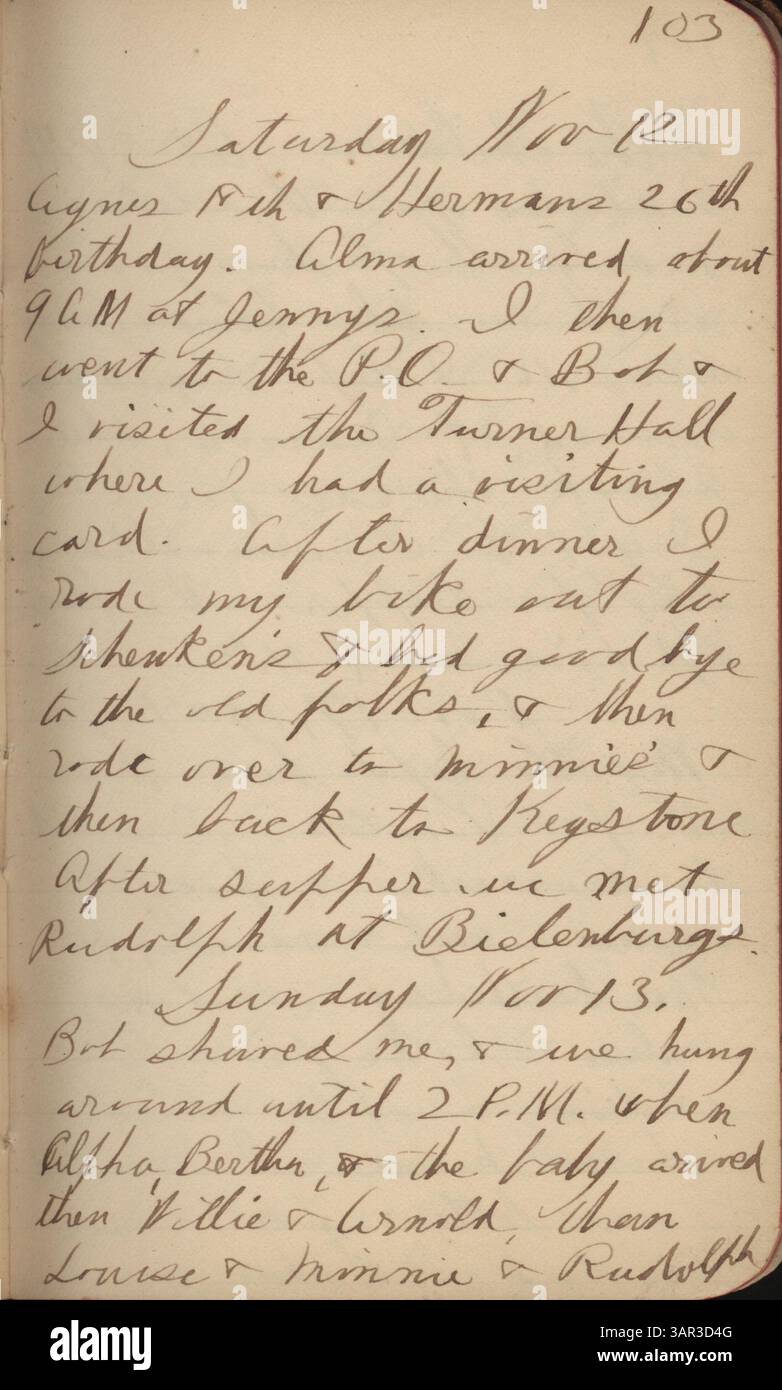 103
Saturday Nov 12
Agnes 18th & Hermans 26th
birthday. Alma arrived about
9 AM at Jennys. I then
went to the P.O. & Bob &
I visited the Turner Hall
where I had a visiting
card. After dinner I
rode my bike out to
Schenken's & bid good bye
to the old folks, & then
rode over to Minnie's &
then back to Keystone
After supper we met
Rudolph at Bielenburgs.
Sunday Nov 13.
Bob shaved me, & we hung
around until 2 P.M. when
Alpha, Bertha, & the baby arrived
then Willie & Arnold, then
Louise & Minnie & Rudolph
alamy
Image ID: 3AR3D4G
www.alamy.com